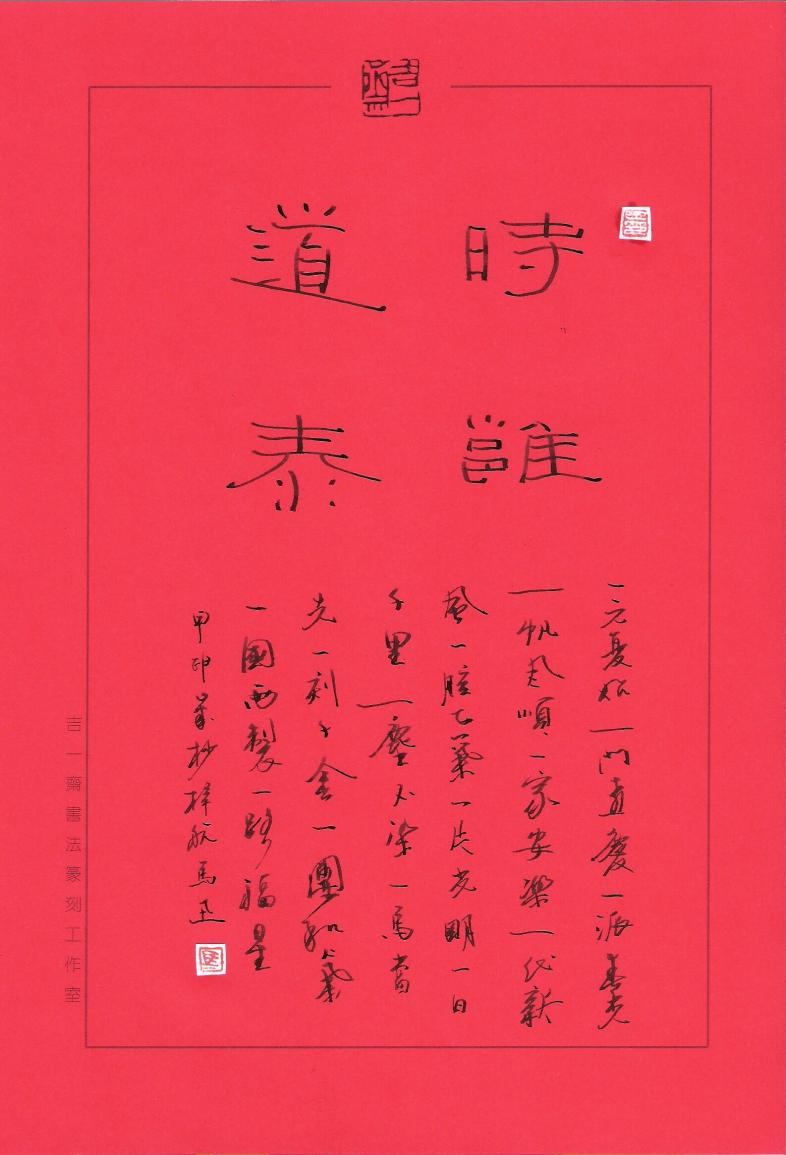 時雝
道泰
一元复始一門慶一派春光
一帆风順一家安樂一代新
風一腔正氣一片光明一日
千里一塵不染一馬當
先一刻千金一團和氣
一國兩製一路福星
甲申歲杪梓航馬迅
吉一齋書法篆刻工作室